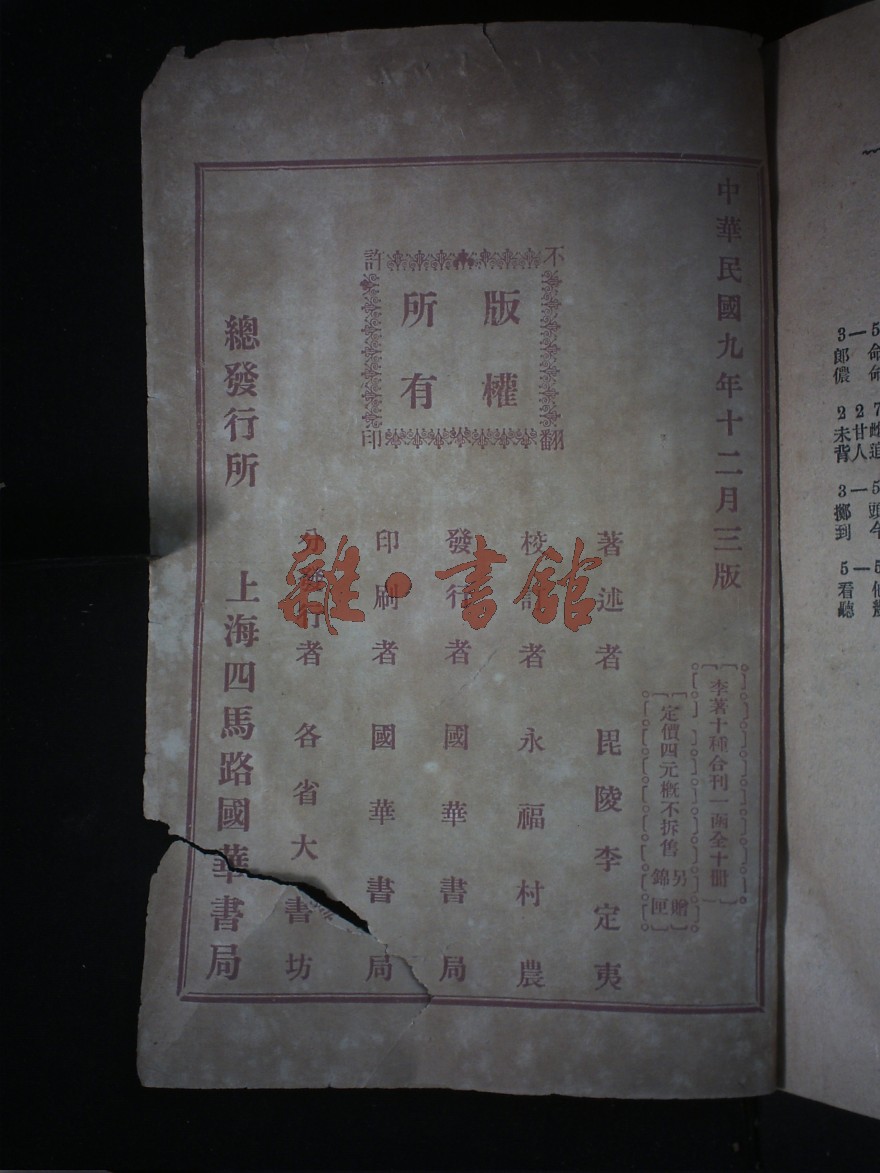 中華民國九年十二月三版
李著十種合刊一函全十册
定價四元概不拆售 另贈錦匣
不許翻印
版權所有
著述者毘陵李定夷
校訂者永福村農
發行者國華書局
印刷者國華書局
分發行者各省大書坊
總發行所 上海四馬路國華書局
雜·書館
3—5
郎 命
儂 命
2 2 7
未甘雌
背人追
3—5
擲 頭
到 今
5—5
看 他
聽